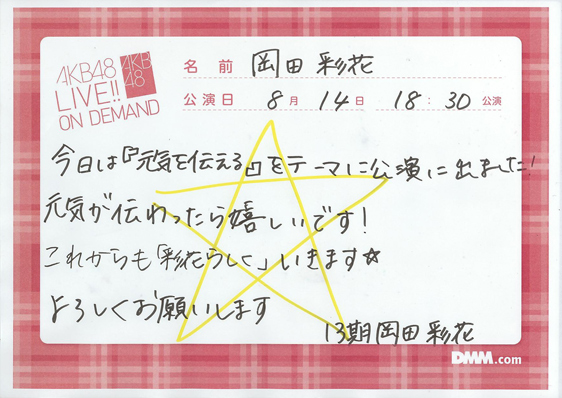 AKB48
LIVE!!
ON DEMAND
AKB
48
名 前 岡田 彩花
公演日 8月 14日 18:30公演
今日は『元気を伝える』をテーマに公演に出ました!
元気が伝わったら嬉しいです!
これからも「彩花らしく」いきます☆
よろしくお願いします
13期岡田彩花
DMM.com